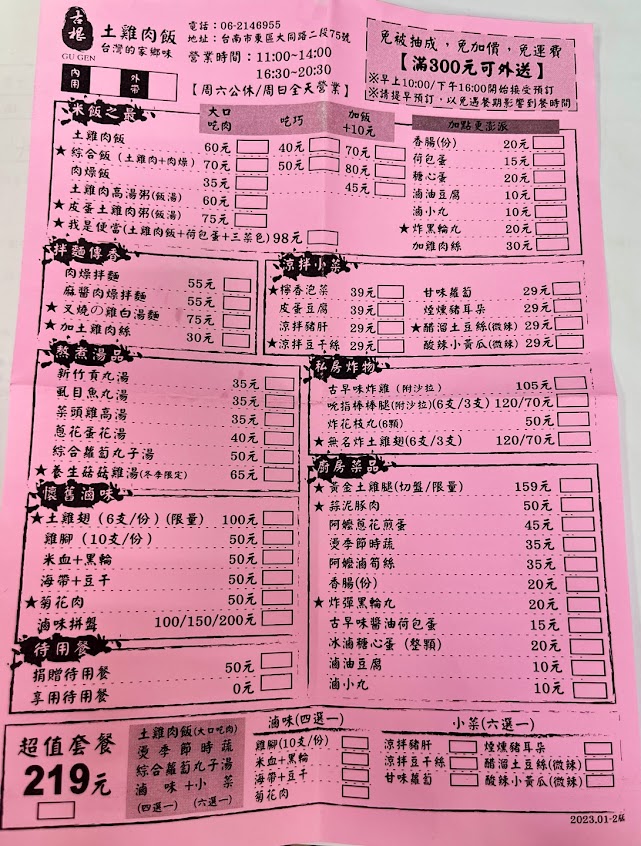 古根
GU GEN
土雞肉飯
台灣的家鄉味
內用
外帶
電話：06-2146955
地址：台南市東區大同路二段75號
營業時間：11:00~14:00
16:30~20:30
【周六公休/周日全天營業】
免被抽成，免加價，免運費
【滿300元可外送】
※早上10:00/下午16:00開始接受預訂
※請提早預訂，以免遇餐期影響到餐時間
米飯之最
大口吃肉 吃巧 加飯+10元
土雞肉飯 60元 40元 70元
★綜合飯（土雞肉+肉燥） 70元 50元 80元
肉燥飯 35元 45元
土雞肉高湯粥(飯湯) 60元
★皮蛋土雞肉粥(飯湯) 75元
★我是便當(土雞肉飯+荷包蛋+三菜色) 98元
加點更澎派
香腸(份) 20元
荷包蛋 15元
糖心蛋 20元
滷油豆腐 10元
滷小丸 10元
★炸黑輪丸 20元
加雞肉絲 30元
拌麵傳香
肉燥拌麵 55元
麻醬肉燥拌麵 55元
★叉燒の雞白湯麵 75元
★加土雞肉絲 30元
涼拌小菜
★檸香泡菜 39元
皮蛋豆腐 39元
涼拌豬肝 29元
★涼拌豆干絲 29元
甘味蘿蔔 29元
煙燻豬耳朵 29元
★醋溜土豆絲(微辣) 29元
酸辣小黃瓜(微辣) 29元
熬煮湯品
新竹貢丸湯 35元
虱目魚丸湯 35元
菜頭雞高湯 35元
蔥花蛋花湯 40元
綜合蘿蔔丸子湯 50元
★養生菇菇雞湯(冬季限定) 65元
私房炸物
古早味炸雞（附沙拉） 105元
吮指棒棒腿(附沙拉)(6支/3支) 120/70元
炸花枝丸(6顆) 50元
★無名炸土雞翅(6支/3支) 120/70元
懷舊滷味
★土雞翅（6支/份）(限量) 100元
雞腳（10支/份） 50元
米血+黑輪 50元
海帶+豆干 50元
★菊花肉 50元
滷味拼盤 100/150/200元
廚房菜品
★黃金土雞腿(切盤/限量) 159元
★蒜泥豚肉 50元
阿嬤蔥花煎蛋 45元
燙季節時蔬 35元
阿嬤滷筍絲 35元
香腸(份) 20元
★炸彈黑輪丸 20元
古早味醬油荷包蛋 15元
冰滷糖心蛋（整顆） 20元
滷油豆腐 10元
滷小丸 10元
待用餐
捐贈待用餐 50元
享用待用餐 0元
超值套餐
219元
土雞肉飯(大口吃肉)
燙季節時蔬
綜合蘿蔔丸子湯
滷味+小菜
(四選一) (六選一)
滷味(四選一)
雞腳(10支/份)
米血+黑輪
海帶+豆干
菊花肉
小菜(六選一)
涼拌豬肝 煙燻豬耳朵
涼拌豆干絲 醋溜土豆絲(微辣)
甘味蘿蔔 酸辣小黃瓜(微辣)
2023.01-2版